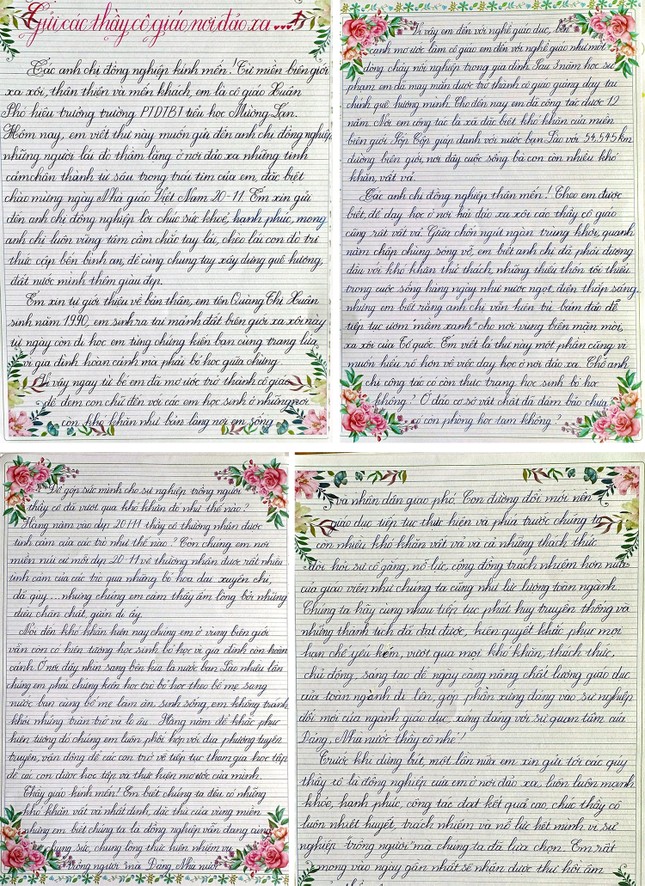 Gửi các thầy cô giáo nơi đảo xa
Các anh chị đồng nghiệp kính mến! Từ miền biên giới
xa xôi, thân thiện và mến khách, em là cô giáo Xuân
Phó hiệu trưởng trường PTDTBT tiểu học Mường Lạn.
Hôm nay, em viết thư này muốn gửi đến anh chị đồng nghiệp
những người lái đò thầm lặng ở nơi đảo xa những tình
cảm chân thành từ sâu trong trái tim của em, đặc biệt
chào mừng ngày Nhà giáo Việt Nam 20-11. Em xin gửi
đến anh chị đồng nghiệp lời chúc sức khoẻ, hạnh phúc, mong
anh chị luôn vững tâm cầm chắc tay lái, chèo lái con đò tri
thức cập bến bình an, để cùng chung tay xây dựng quê hương,
đất nước mình thêm giàu đẹp.
Em xin tự giới thiệu về bản thân, em tên Quàng Thị Xuân
sinh năm 1990, em sinh ra tại mảnh đất biên giới xa xôi này
từ ngày còn đi học em từng chứng kiến bạn cùng trang lứa,
vì gia đình hoàn cảnh mà phải bỏ học giữa chừng.
Vì vậy ngay từ bé em đã mơ ước trở thành cô giáo
để đem con chữ đến với các em học sinh ở những nơi
còn khó khăn như bản làng nơi em sống.
Vì vậy em đến với nghề giáo dục, bên
cạnh mơ ước làm cô giáo em đến với nghề giáo như một
dòng chảy nối nghiệp trong gia đình. Sau 3 năm học sư
phạm em đã may mắn được trở thành cô giáo giảng dạy tại
chính quê hương mình. Cho đến nay em đã công tác được 12
năm. Nơi em công tác là xã đặc biệt khó khăn của miền
biên giới Sốp Cộp giáp danh với nước bạn Lào với 54,545km
đường biên giới, nơi đây cuộc sống bà con còn nhiều khó
khăn, vất vả.
Các anh chị đồng nghiệp thân mến! Theo em được
biết, để dạy học ở nơi hải đảo xa xôi các thầy cô giáo
cũng rất vất vả. Giữa chốn ngút ngàn trùng khơi, quanh
năm chập chùng sóng vỗ, em biết anh chị đã phải đương
đầu với khó khăn thử thách, những thiếu thốn tối thiểu
trong cuộc sống hàng ngày như nước ngọt, điện thắp sáng...
nhưng em biết rằng anh chị vẫn kiên trì, bám đảo để
tiếp tục ươm "mầm xanh" cho nơi vùng biển mặn mòi,
xa xôi của Tổ quốc. Em viết lá thư này một phần cũng vì
muốn hiểu rõ hơn về việc dạy học ở nơi đảo xa. Chỗ anh
chị công tác có còn thực trạng học sinh bỏ học
không? Ở đảo cơ sở vật chất đã đảm bảo chưa,
có còn phòng học tạm không?
Để góp sức mình cho sự nghiệp trồng người
thầy cô đã vượt qua khó khăn đó như thế nào?
Hàng năm vào dịp 20/11 thầy cô thường nhận được
tình cảm của các trò như thế nào? Còn chúng em nơi
miền núi cứ mỗi dịp 20-11 về thường nhận được rất nhiều
tình cảm của các trò qua những bó hoa dại xuyến chi,
dã quỳ... nhưng chúng em cảm thấy ấm lòng bởi những
điều chân chất, giản dị ấy.
Nói đến khó khăn hiện nay chúng em ở vùng biên giới
vẫn còn có hiện tượng học sinh bỏ học vì gia đình còn hoàn
cảnh. Ở nơi đây nhìn sang bên kia là nước bạn Lào nhiều lần
chúng em phải chứng kiến học trò bỏ học theo bố mẹ sang
nước bạn cùng bố mẹ làm ăn, sinh sống, em không tránh
khỏi những trăn trở và lo âu. Hàng năm để khắc phục
hiện tượng đó chúng em luôn phối hợp với địa phương tuyên
truyền, vận động để các con trở về tiếp tục tham gia học tập
để các con được học tập và thực hiện mơ ước của mình.
Thầy giáo kính mến! Em biết chúng ta đều có những
khó khăn vất vả nhất định, đặc thù của vùng miền
nhưng em biết chúng ta là đồng nghiệp vẫn đang cùng
chung sức, chung lòng thực hiện nhiệm vụ
trồng người mà Đảng, Nhà nước
và nhân dân giao phó. Con đường đổi mới nền
giáo dục tiếp tục thực hiện và phía trước chúng ta
còn nhiều khó khăn vất vả và cả những thách thức
đòi hỏi sự cố gắng, nỗ lực, cộng đồng trách nhiệm hơn nữa
của giáo viên như chúng ta cũng như lực lượng toàn ngành.
Chúng ta hãy cùng nhau tiếp tục phát huy truyền thống và
những thành tích đã đạt được, kiên quyết khắc phục mọi
hạn chế yếu kém, vượt qua mọi khó khăn, thách thức,
chủ động, sáng tạo để ngày càng nâng chất lượng giáo dục
của toàn ngành đi lên, góp phần xứng đáng vào sự nghiệp
đổi mới của ngành giáo dục, xứng đáng với sự quan tâm của
Đảng, Nhà nước thầy cô nhé!
Trước khi dừng bút, một lần nữa em xin gửi tới các quý
thầy cô là đồng nghiệp của em ở nơi đảo xa, luôn luôn mạnh
khoẻ, hạnh phúc, công tác đạt kết quả cao, chúc thầy cô
luôn nhiệt huyết, trách nhiệm và nỗ lực hết mình vì sự
nghiệp trồng người mà chúng ta đã lựa chọn. Em rất
mong vào ngày gần nhất sẽ nhận được thư hồi âm